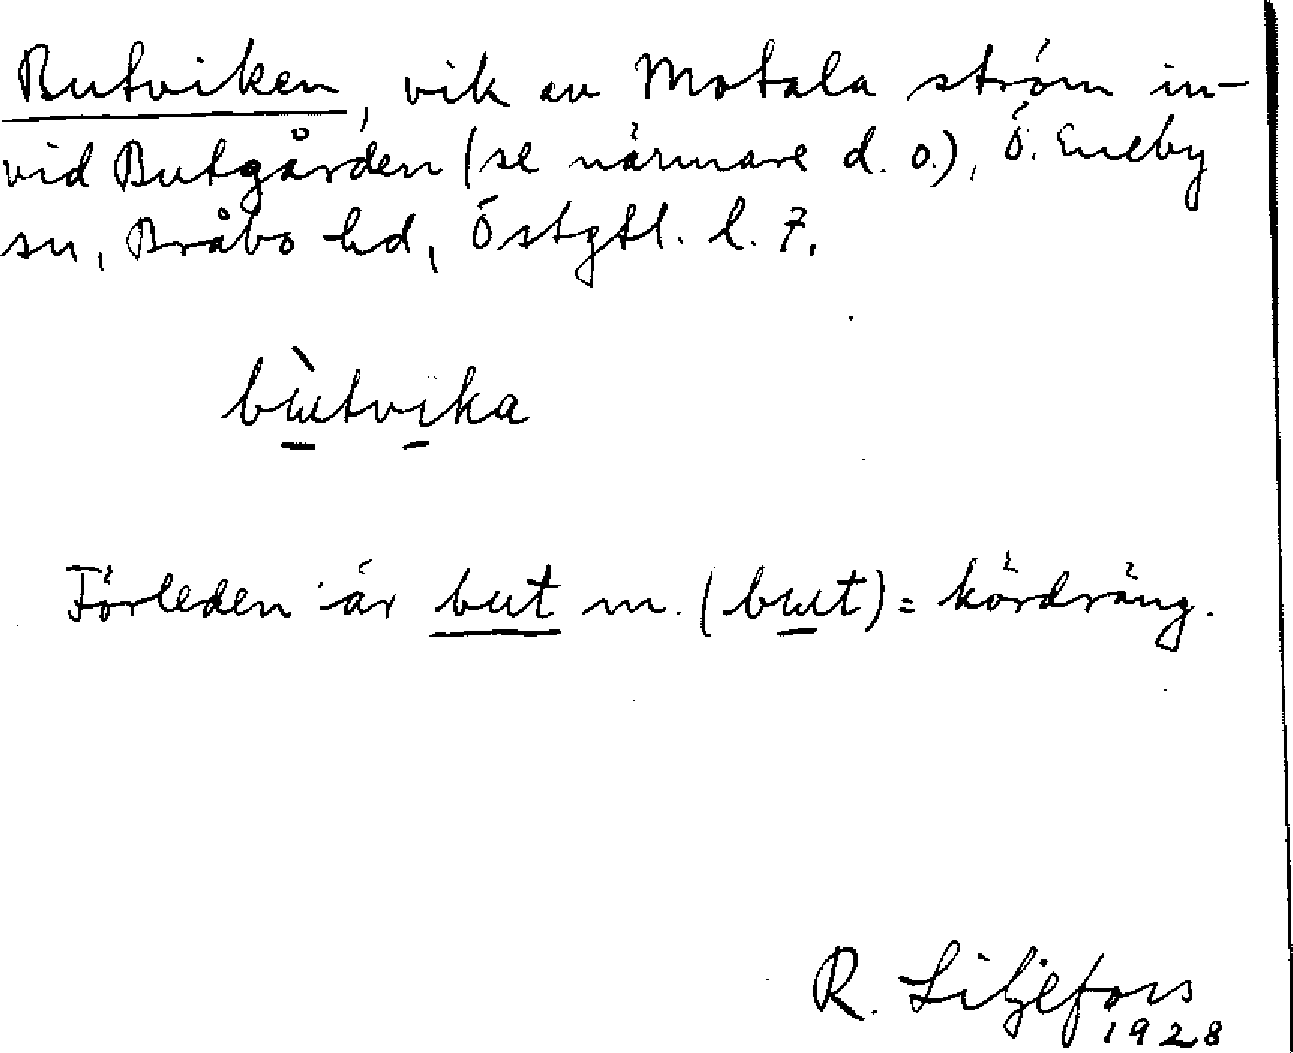 Butviken, vik av Motala ström in-
vid Butgården (se närmare d. o.), Ö. Eneby
sn, Bråbo hd, Östgtl. l. 7.
bɯ̀tvika
Förleden är but m. (bɯt) = kördräng.
R. Liljefors
1928